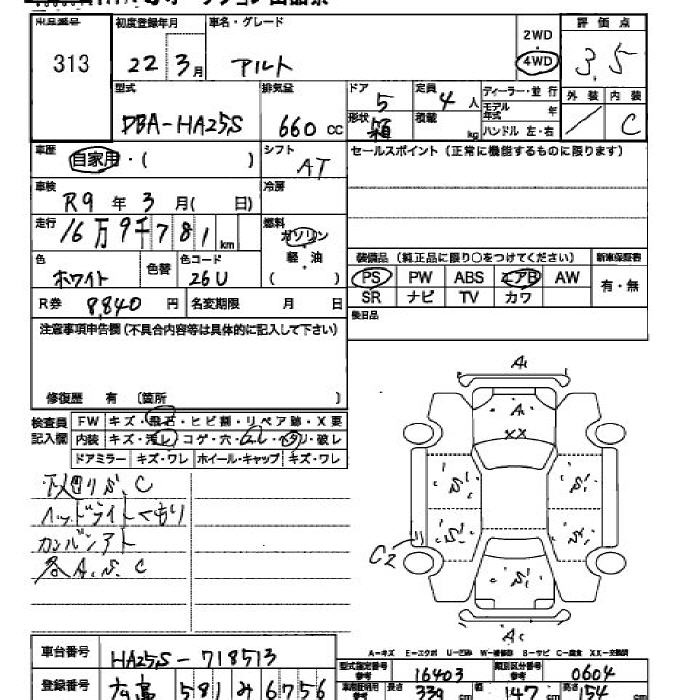 出品番号 313
初度登録年月 22年 3月
車名・グレード アルト
2WD ・ 4WD
評価点 3.5
外装 / 内装 C
型式 DBA-HA25S
排気量 660 cc
ドア 5 形状 箱
定員 4 人 積載 kg
ディーラー・並行
モデル年式 年
ハンドル 左・右
車歴 自家用・( )
シフト AT
セールスポイント (正常に機能するものに限ります)
車検 R9 年 3 月( 日)
冷房
走行 16万9千781 km
燃料 ガソリン 軽・油 ( )
色 ホワイト 色替 色コード 26U
装備品 (純正品に限り○をつけてください) 新車保証書
PS PW ABS エアB AW 有・無
SR ナビ TV カワ
R券 8,840 円 名変期限 月 日
後日品
注意事項申告欄 (不具合内容等は具体的に記入して下さい)
修復歴 有 〔箇所 〕
検査員記入欄
FW キズ・飛石・ヒビ割・リペア跡・X要
内装 キズ・汚レ・コゲ・穴・
ドアミラー キズ・ワレ ホイール・キャップ キズ・ワレ
下廻りS.C
ヘッドライトくもり
カンバンアト
各A.S.C
A
A
XX
S S
S S
C2
S
A
A-キズ E-エクボ U-凹み W-補修跡 S-サビ C-腐食 XX-交換済
車台番号 HA25S-718513
型式指定番号 参考 16403 類別区分番号 参考 0604
登録番号 581 み 6756
長さ 339 cm 幅 147 cm 高さ 154 cm